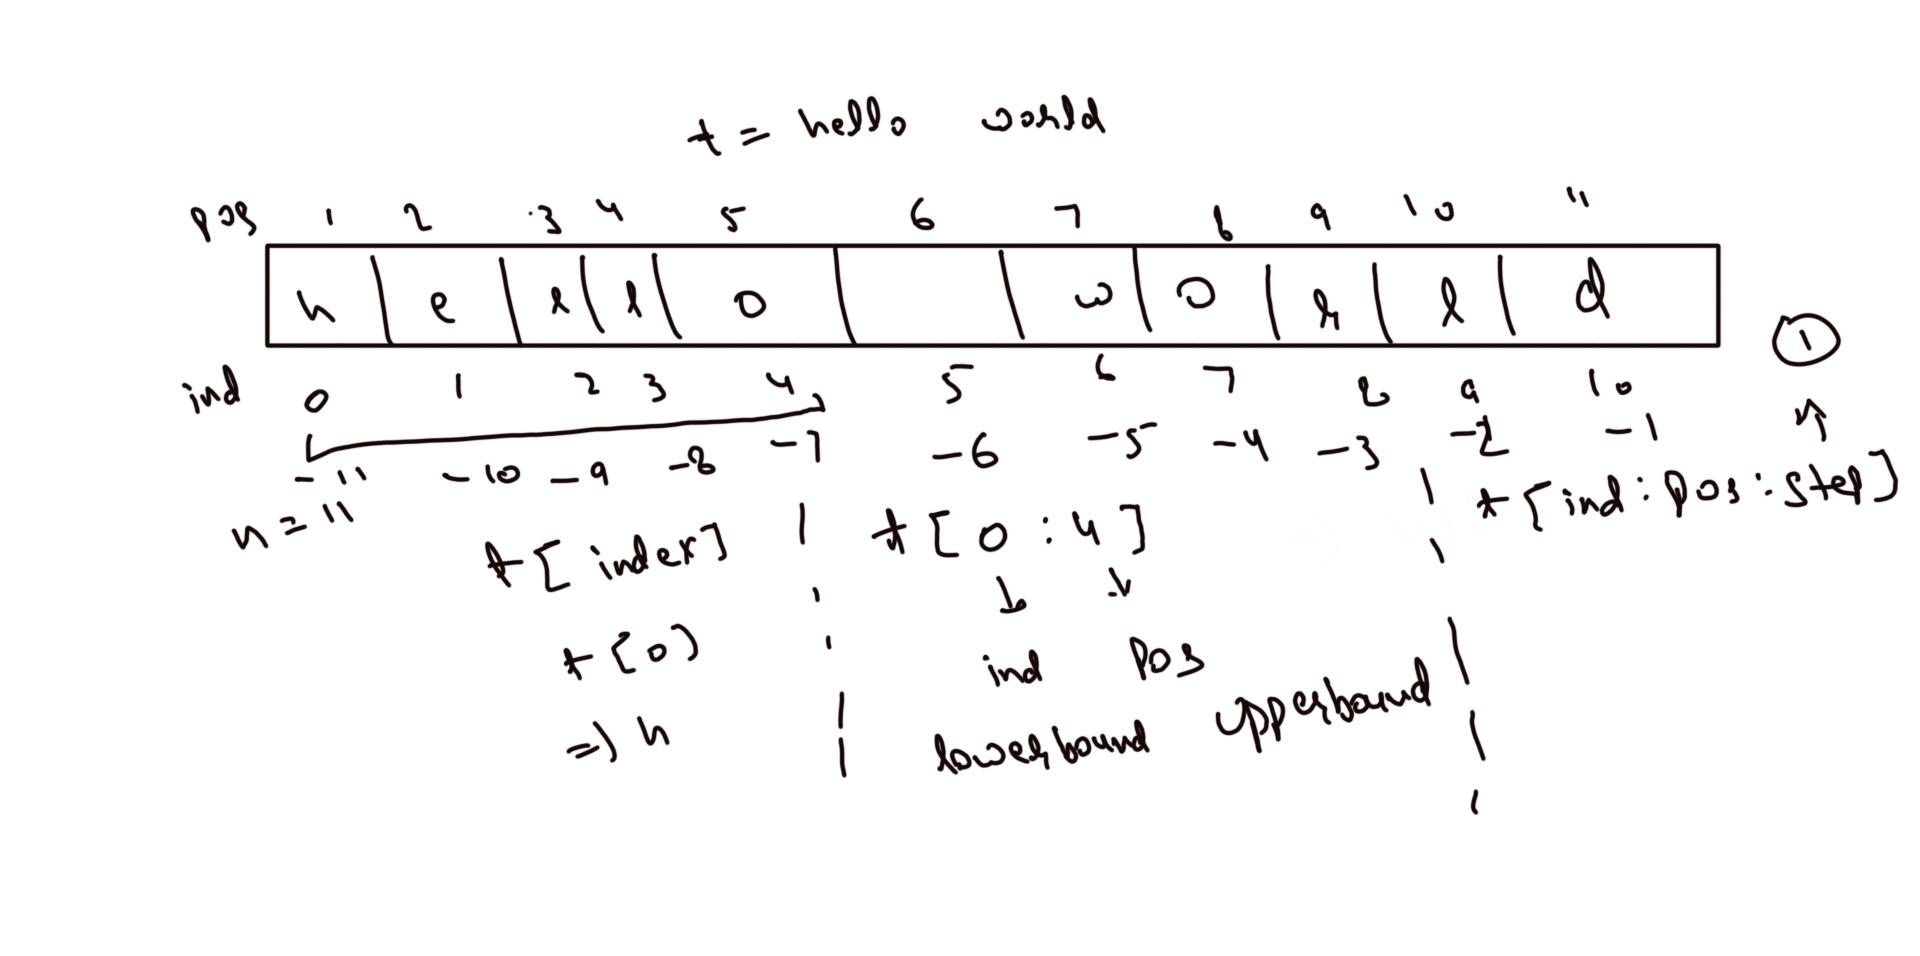 t = hello world
pos 1 2 3 4 5 6 7 8 9 10 11
h e l l o w o r l d
ind 0 1 2 3 4 5 6 7 8 9 10
-11 -10 -9 -8 -7 -6 -5 -4 -3 -2 -1
1
n = 11
t[index]
t[0]
=> h
t[0:4]
ind pos
lowerbound upperbound
t[ind:pos:step]